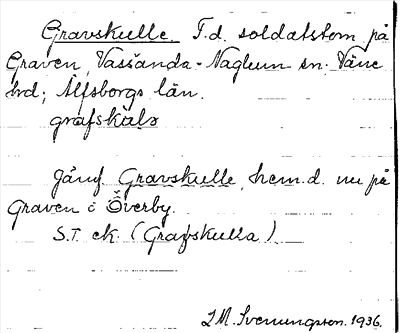 Gravskulle. F.d. soldatstom på
Graven, Vassända-Naglum sn. Väne
hrd; Älfsborgs län.
grafskals
Jämf. Gravskulle, hem.d. nu på
Graven i Överby.
S.T. ek. (Grafskulla).
I.M. Svenungsson. 1936.